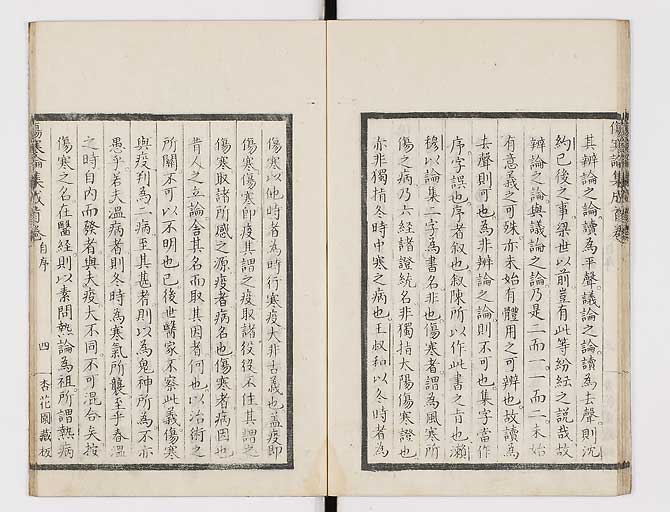 其辨論之論讀為平聲議論之論讀為去聲則沈
約已後之事梁世以前豈有此等紛紜之説哉故
辨論之論與議論之論乃是二而一一而二未始
有意義之可殊亦未始有體用之可辨也故讀為
去聲則可也為非辨論之論則不可也集字當作
序字誤也序者叙也叙陳所以作此書之旨也瀨
穆以論集二字為書名非也傷寒者謂為風寒所
傷之病乃六經諸證統名非獨指太陽傷寒證也
亦非獨指冬時中寒之病也王叔和以冬時者為
傷寒以他時者為時行寒疫大非古義也蓋疫即
傷寒傷寒即疫其謂之疫取諸役役不住其謂之
傷寒取諸所感之源疫者病名也傷寒者病因也
昔人之立論舍其名而取其因者何也以治術之
所關不可以不明也已後世醫家不察此義傷寒
與疫判為二病至其甚者則以為鬼神所為不亦
愚乎若夫溫病者則冬時為寒氣所襲至乎春溫
之時自內而發者與夫疫大不同不可混合矣按
傷寒之名在醫經則以素問熱論為祖所謂熱病
傷寒論集成首卷 自序 四 杏花園藏板